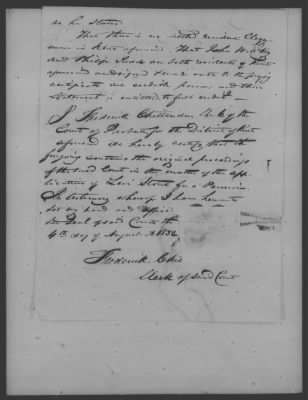 as he states
That there is no resident Clergy
man in Kent aforesaid That John
and Philip both residents of Kent
aforesaid and signed
certificate are credible persons and their
Statement is entitled to full credit
I Frederick Chittenden Clerk of the
Court of Probate for the District of Kent
aforesaid do hereby certify that the
foregoing contains the original proceedings
of the said Court in the matter of the app
lication of Levi Stone for a Pension
In testimony whereof I have hereunto
set my hand and
Seal of said Court this
4th day of August AD 1832
Frederick
Clerk of said Court